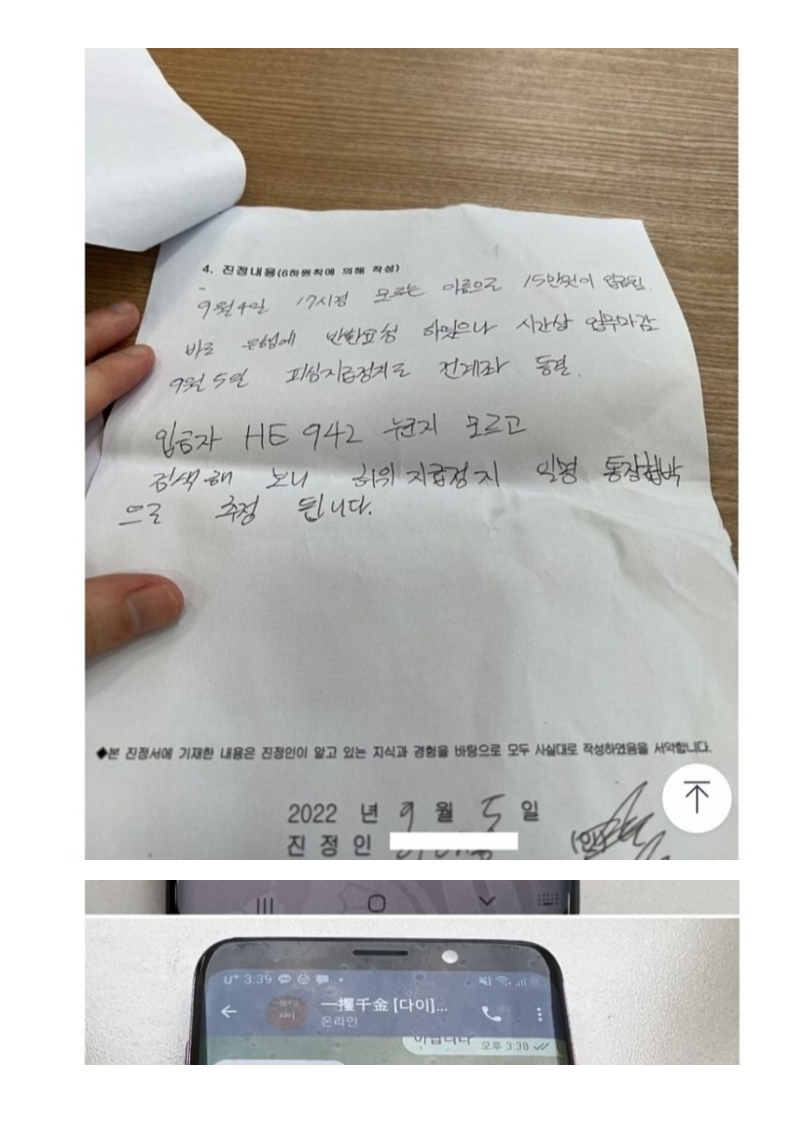 4. 진정내용(6하원칙에 의해 작성)
9월4일 17시경 모르는 이름으로 15만원이 입금됨.
바로 은행에 반환요청 하였으나 시간상 업무마감
9월 5일 피싱지급정지로 전계좌 동결.
입금자 HE 942 누군지 모르고
검색해 보니 허위 지급정지 일명 통장협박
으로 추정 됩니다.
◆본 진정서에 기재한 내용은 진정인이 알고 있는 지식과 경험을 바탕으로 모두 사실대로 작성하였음을 서약합니다.
2022 년 9 월 5 일
진 정 인 (인)
U+ 3:39
一攫千金 [다이]...
다이
온라인
아닙니다 오후 3:38